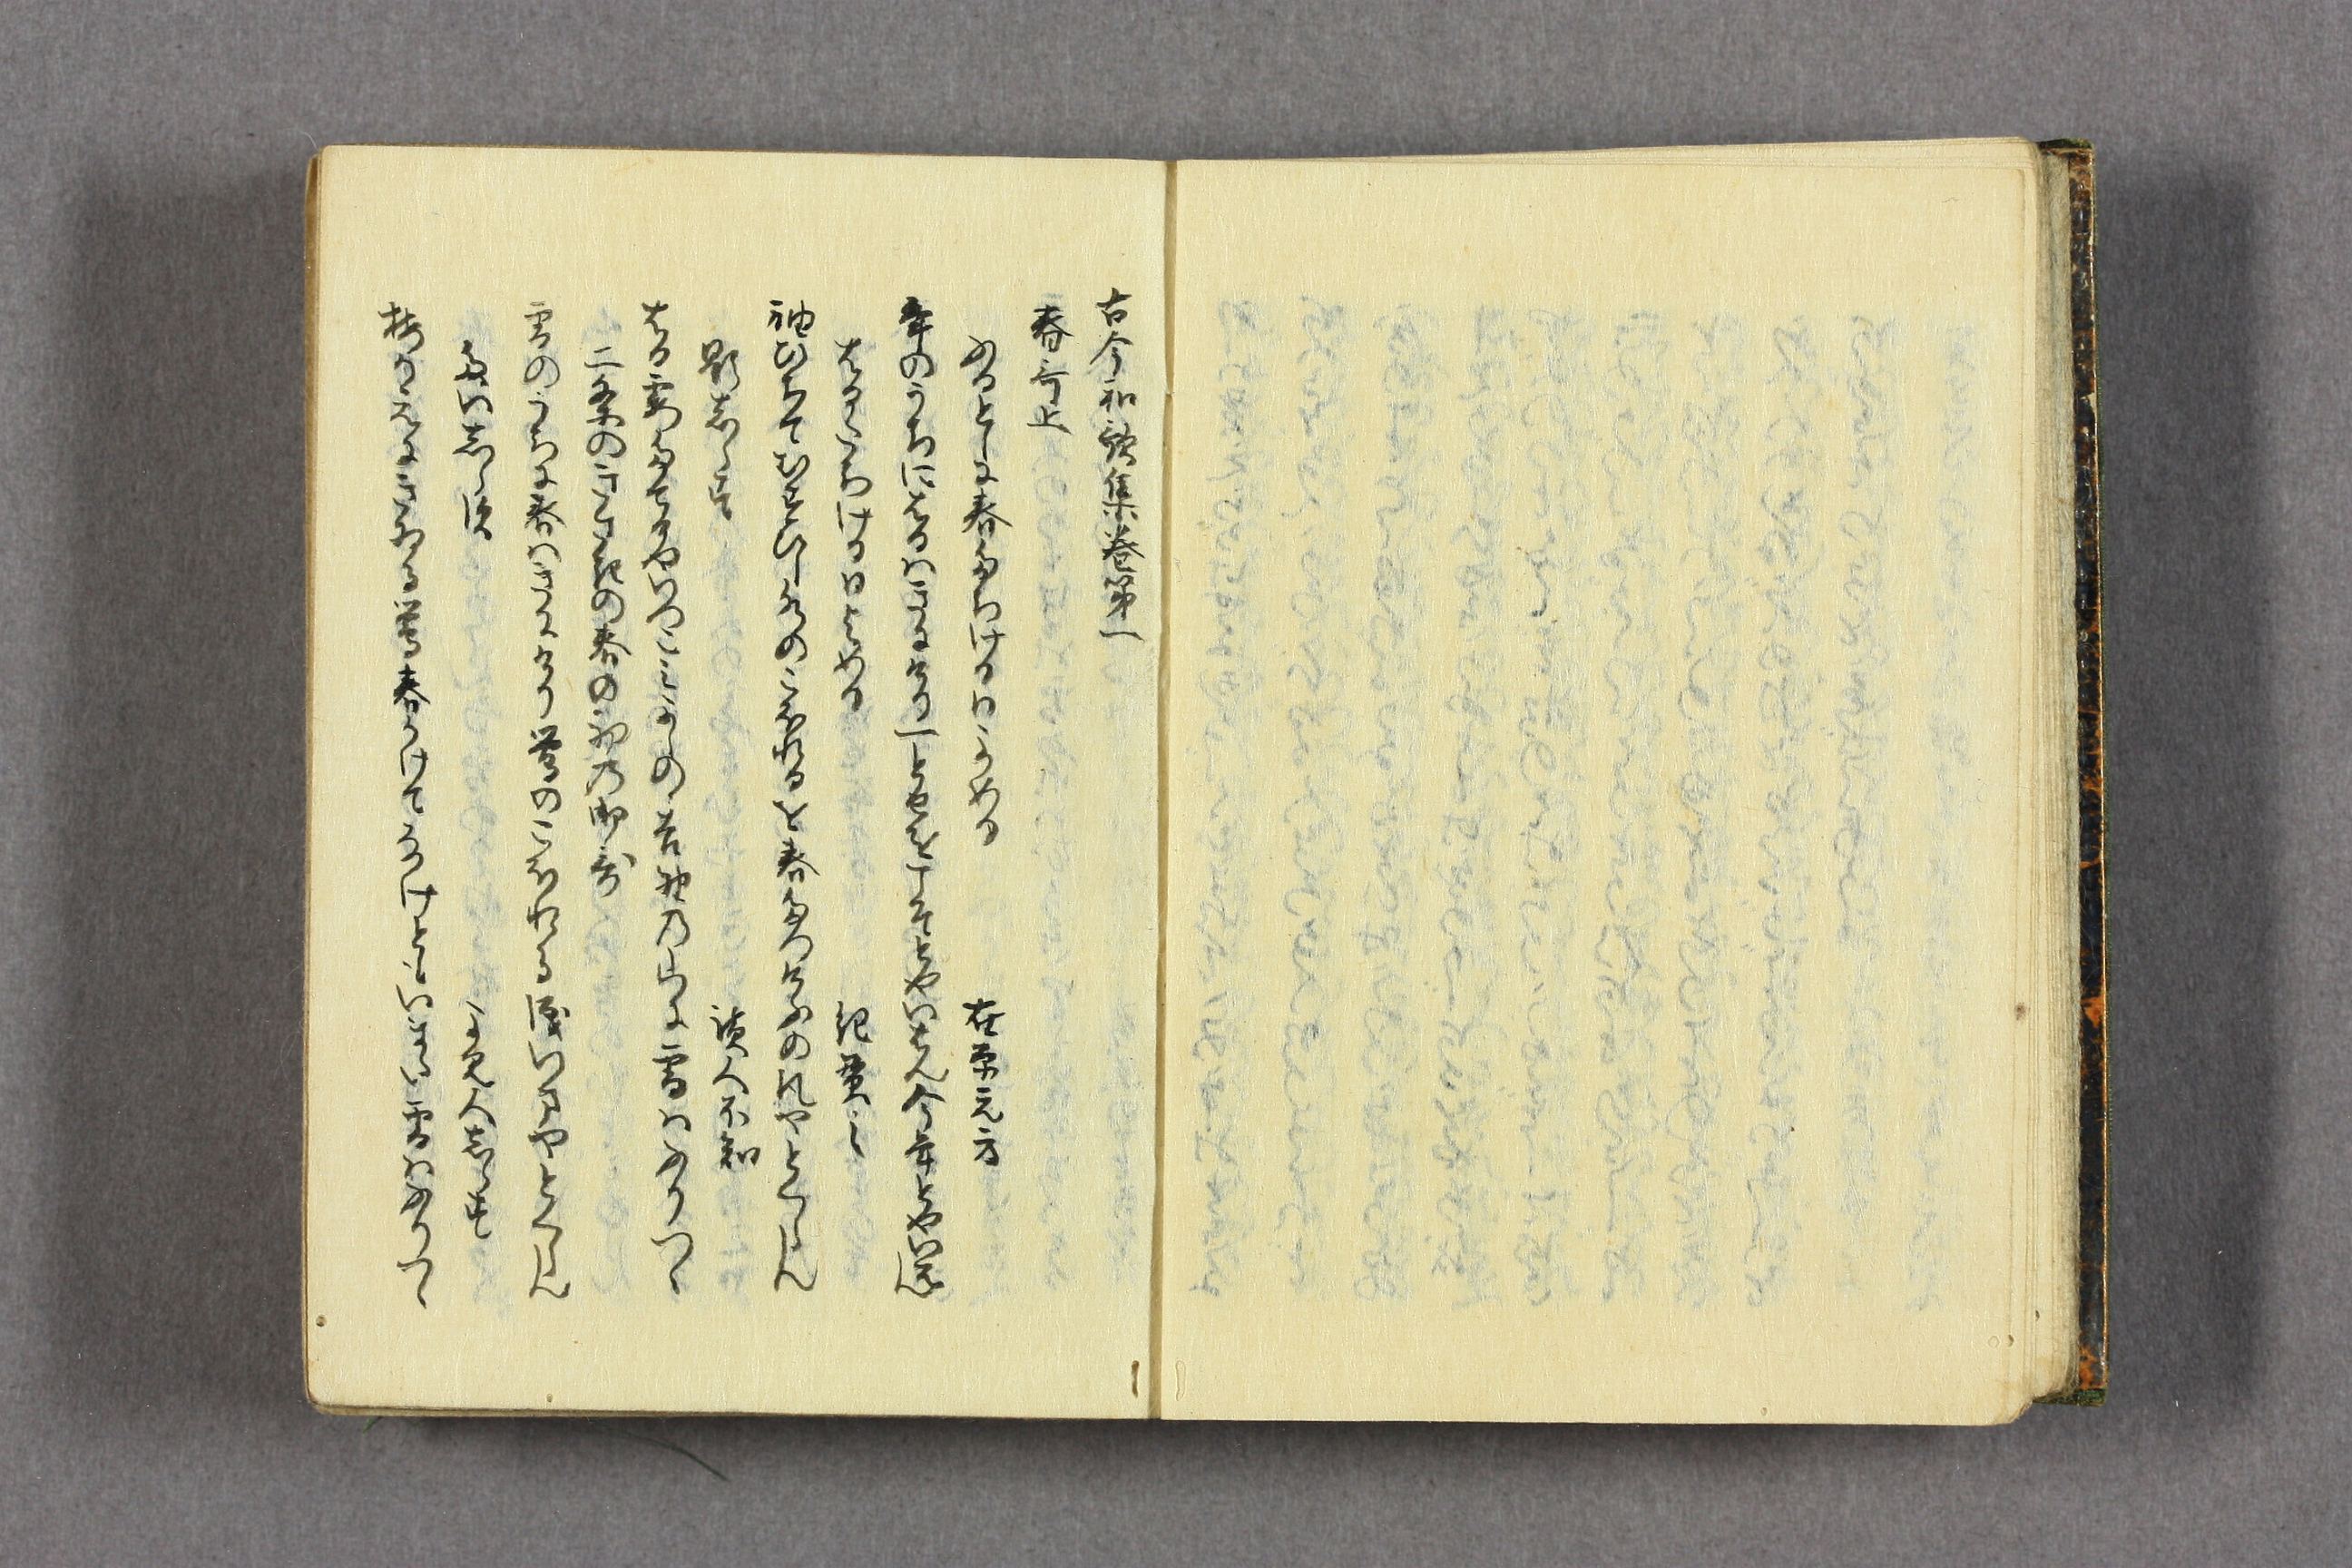 古今和謌集巻第一
春哥上
ふるとしに春たちける日よめる 在原元方
年のうちに春はきにけり一とせをこそとやいはんことしとやいはん
はるたちける日よめる 紀貫之
袖ひちてむすひし水のこほれるを春立けふの風やとくらん
題しらす 読人不知
春霞たてるやいつこみよしのゝ吉野の山に雪はふりつゝ
二条のきさきの春のはしめの御哥
雪のうちに春はきにけり鶯のこほれる涙いまやとくらん
題しらす よみ人しらす
梅かえにきゐる鶯春かけてなけともいまた雪はふりつゝ